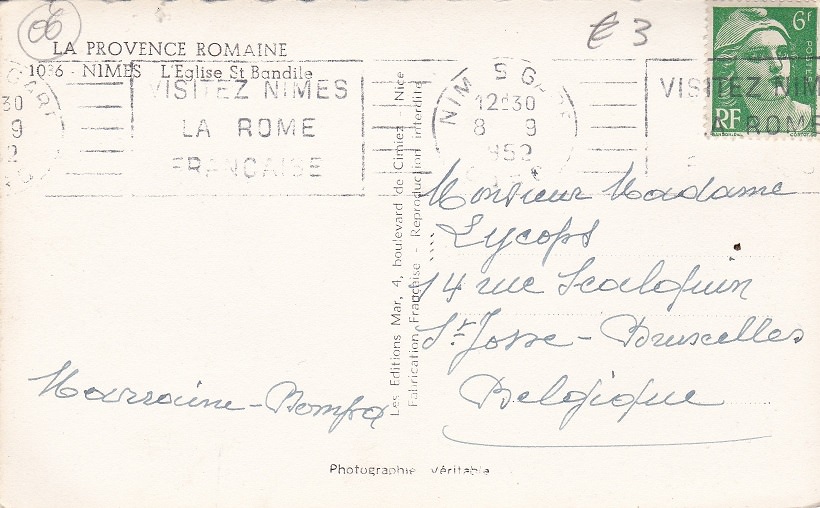 06
LA PROVENCE ROMAINE
1036 - NIMES L'Eglise St Baudile
€ 3
6F
POSTES
RF
VISITEZ NIMES
LA ROME
FRANÇAISE
NIMES GARE
12H30
8 9
1952
GARD
GARE
30
9
2
VISITEZ NIM
ROME
Les Editions Mar, 4, boulevard de Cimiez - Nice
Fabrication Française - Reproduction interdite
Monsieur Madame
Lycops
14 rue Scalquin
St-Josse-Bruxelles
Belgique
Marraine-Bompa
Photographie véritable